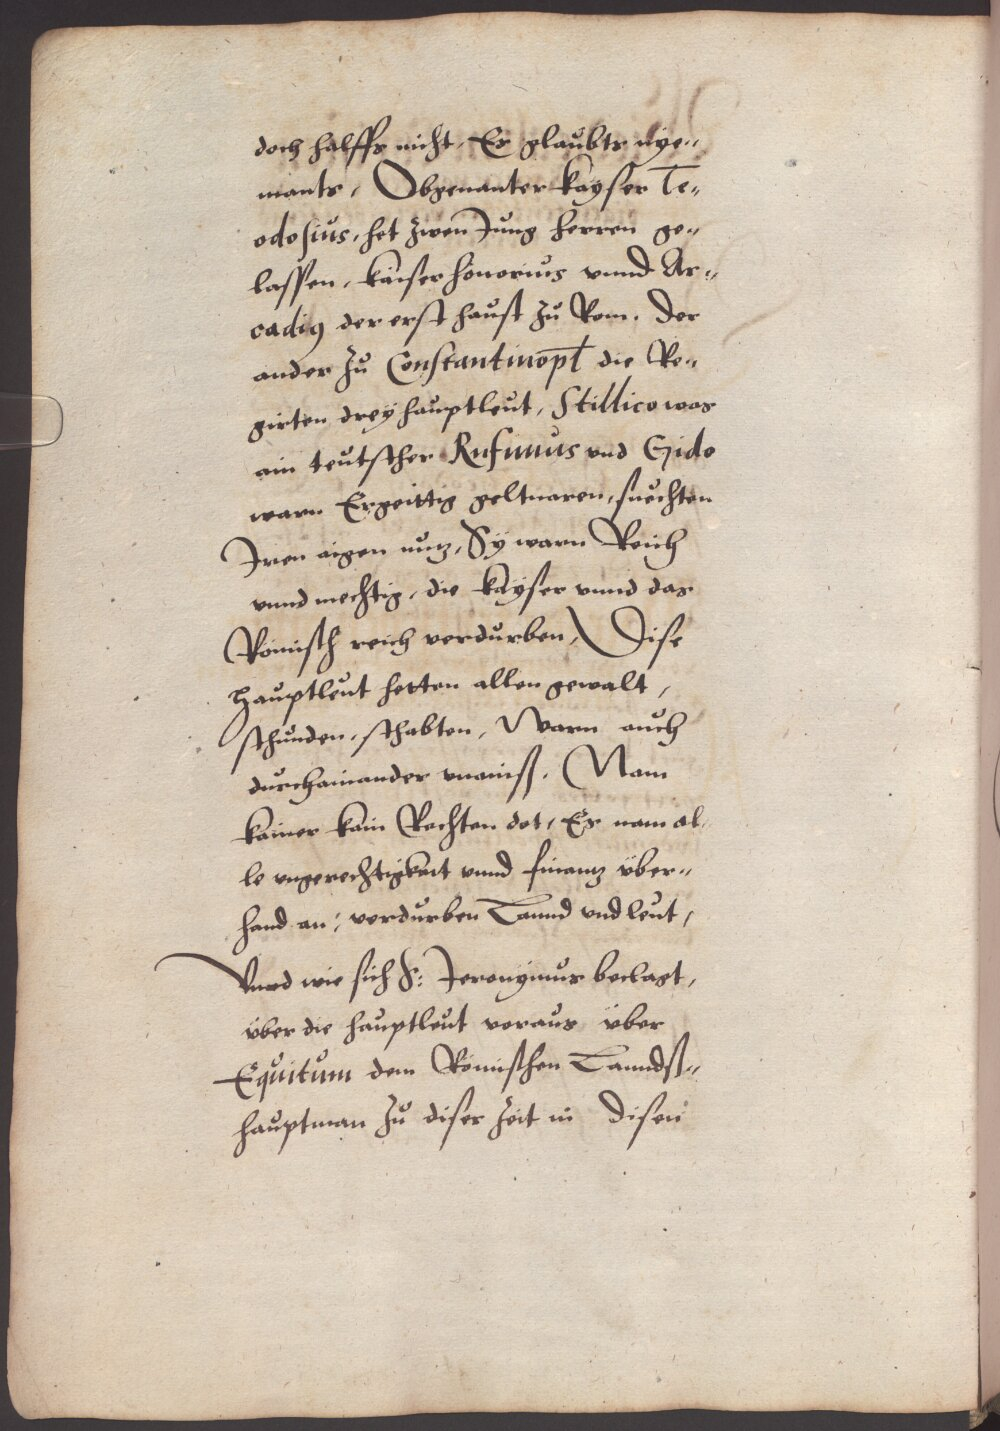 doch halffs nicht, Es glaubts nye=
mants, Obgenanter kayser Te=
odosius, het zwen Jung herren ge=
lassen, kaiser honorius vnnd Ar=
cadig der erst haust zu Rom. der
ander zu Constantinopl die Re=
girten drey hauptleut, Stillico was
ain teutscher Rufinus vnd Gido
warn Ergeittig geltnaren, suechten
Iren aigen nutz, Sy warn Reich
vnnd mechtig, die kayser vnnd das
Römisch reich verdurben, Dise
hauptleut hetten allen gewalt,
schunden, schabten, Warn auch
durchainander vnainß. Nam
kainer kain Rechten dot, Es nam al=
le vngerechtigkait vnnd finantz über=
hand an, verdurben Lannd vnd leut,
Vnnd wie sich S: Jeronymus beclagt,
über die hauptleut voraus über
Equitum dem Römischen Lanndß=
hauptman zu diser zeit in disen